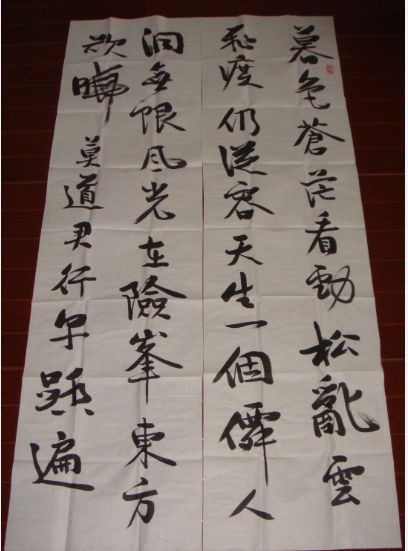 暮色蒼茫看勁松亂雲
飛度仍從容天生一個僊人
洞無限风光在險峯東方
欲曉 莫道君行早踏遍